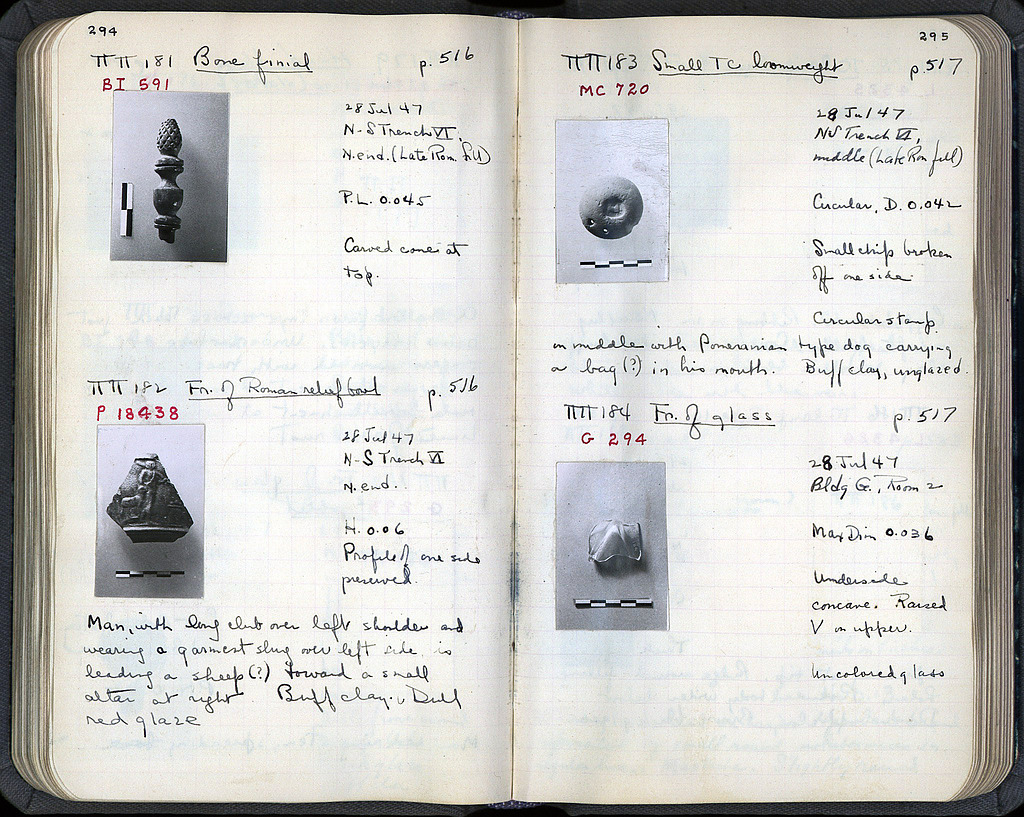 294
ΠΠ 181 Bone finial p. 516
BI 591
28 Jul 47
N-S Trench VI,
N. end. (Late Rom. fill)
P.L. 0.045
Carved cone at
top.
ΠΠ 182 Fr. of Roman relief bowl p. 516
P 18438
28 Jul 47
N-S Trench VI
N. end.
H. 0.06
Profile of one side
preserved.
Man, with long club over left shoulder and
wearing a garment slung over left side is
leading a sheep (?) toward a small
altar at right. Buff clay. Dull
red glaze
295
ΠΠ 183 Small TC loomweight p. 517
MC 720
28 Jul 47
NS Trench VI,
middle (Late Rom fill)
Circular, D. 0.042
Small chip broken
off one side.
Circular stamp
in middle with Pomeranian type dog carrying
a bag (?) in his mouth. Buff clay, unglazed.
ΠΠ 184 Fr. of glass p. 517
G 294
28 Jul 47
Bldg G., Room 2
Max Dim 0.036
Underside
concave. Raised
V on upper.
Uncolored glass